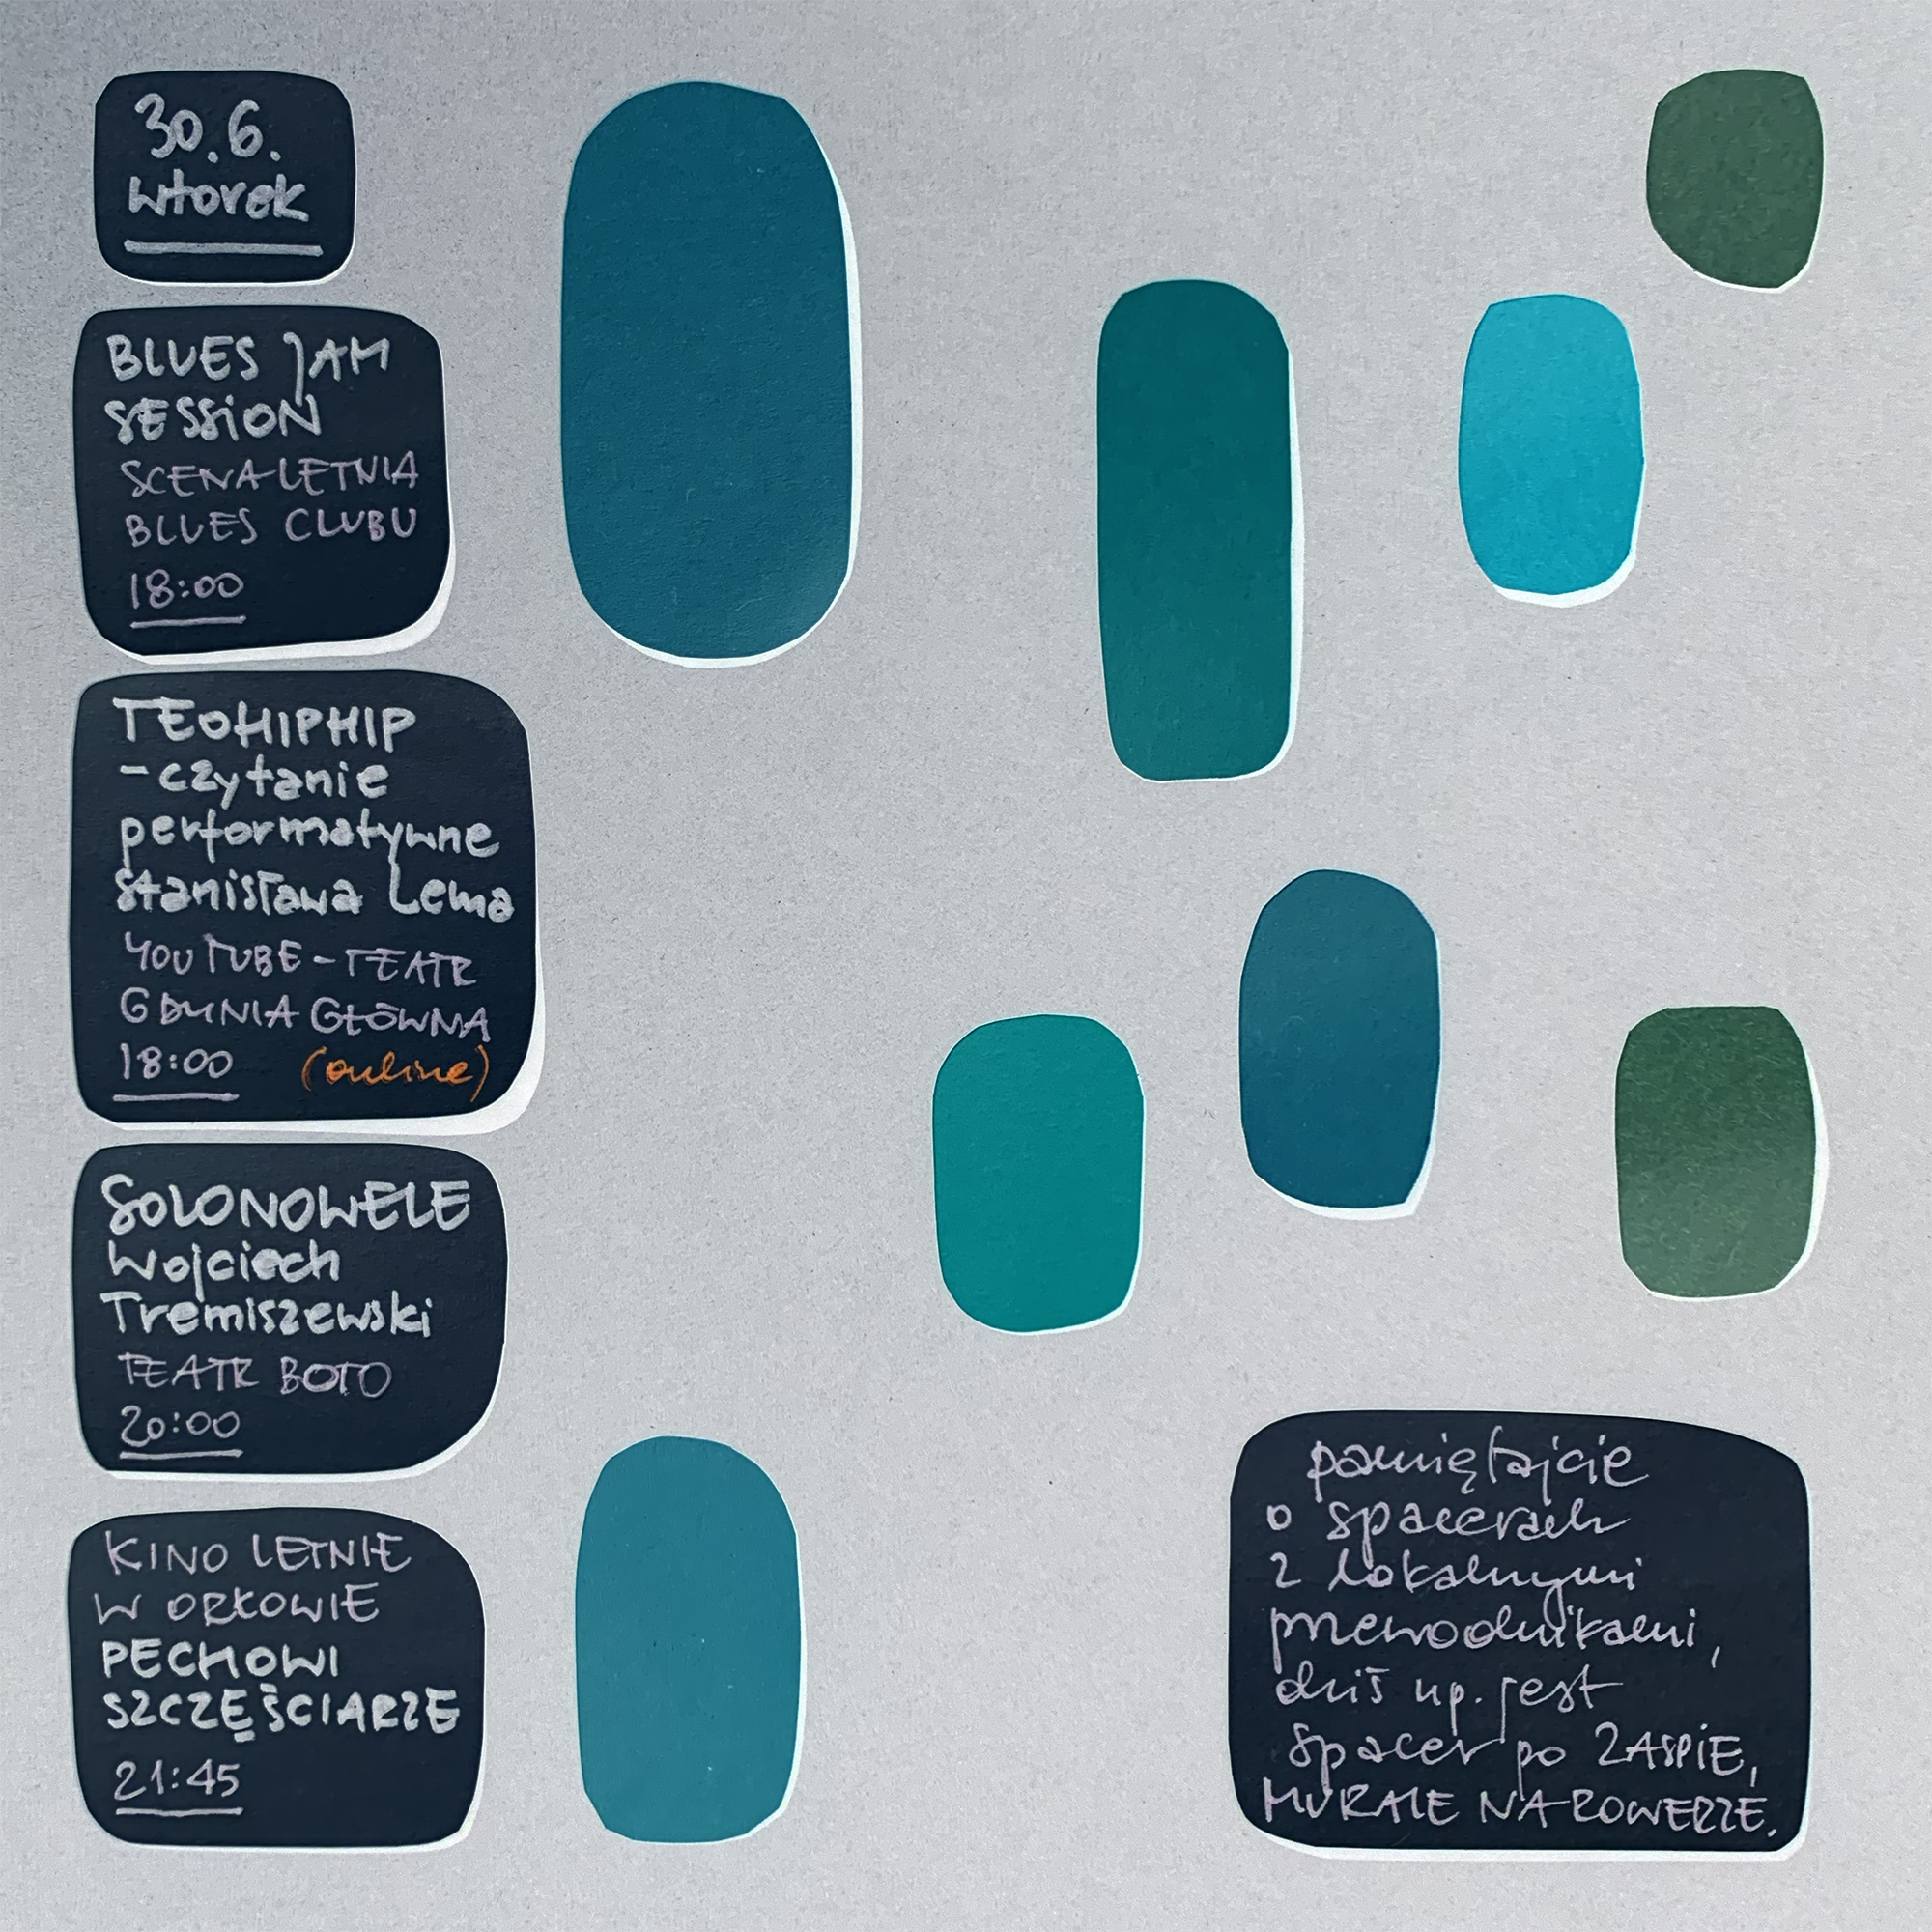 30.6.
wtorek
BLUES JAM
SESSION
SCENA LETNIA
BLUES CLUBU
18:00
TEOHIPHIP
- czytanie
performatywne
Stanisława Lema
YOUTUBE - TEATR
GDYNIA GŁÓWNA
18:00 (online)
SOLONOWELE
Wojciech
Tremiszewski
TEATR BOTO
20:00
KINO LETNIE
W ORŁOWIE
PECHOWI
SZCZĘŚCIARZE
21:45
pamiętajcie
o spacerach
z lokalnymi
przewodnikami,
dziś np. jest
spacer po ZASPIE,
MURALE NA ROWERZE.